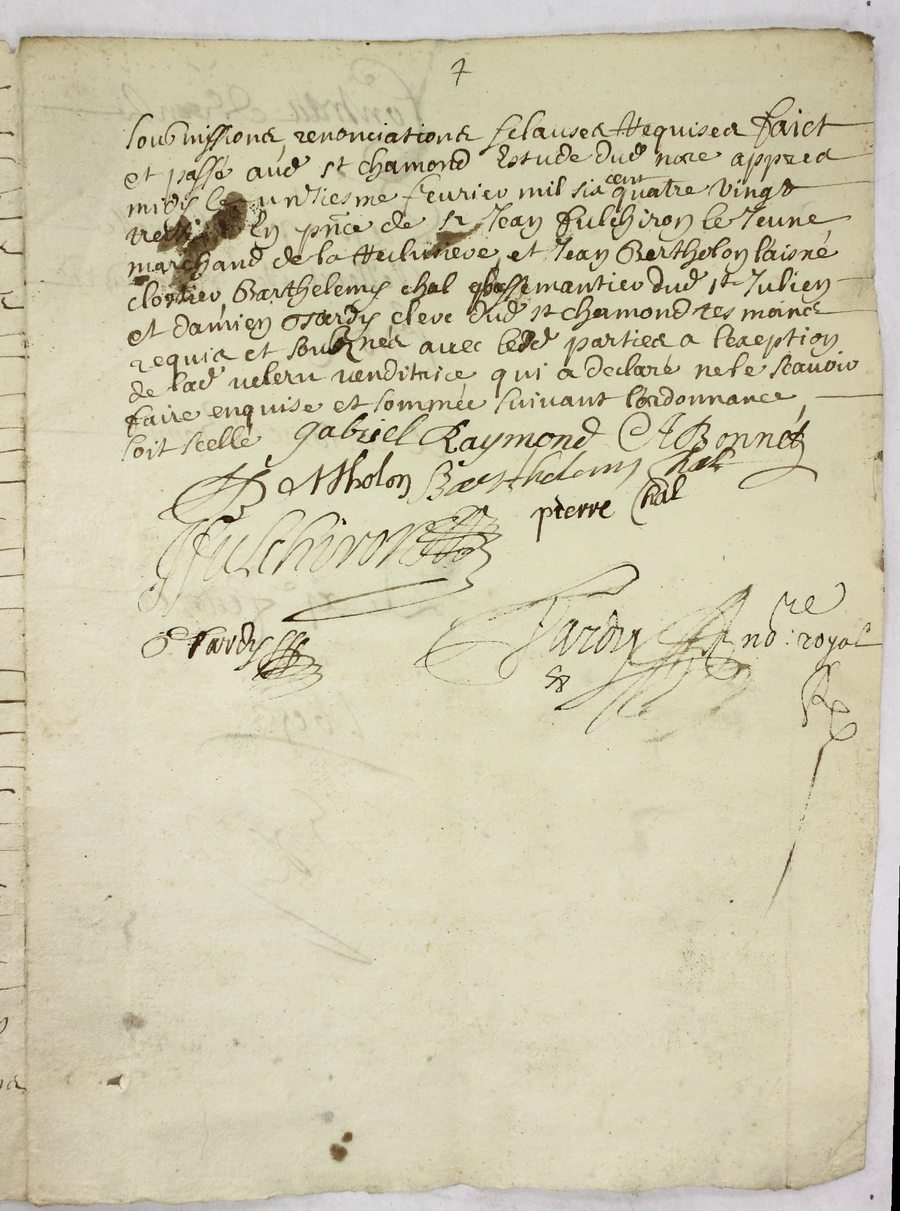 7
soubmissions, renonciations & clauses Requises faict
et passé aud st chamond Estude dud nore appres
midy le unziesme feurier mil six cent quatre vingt
En pnce de sr Jean fulchiron le Jeune
marchand de la et Jean Bertholon laisné
cloutier, Barthelemy chal passemantier dud st Julien
et damien Tardy clerc dud st chamond tesmoins
requis et soubznés avec lesd parties a lexeption
de lad veleru venditrice qui a declaré ne le scavoir
faire enquise et sommée suivant lordonnance,
soit scellé gabriel Raymond A Bonnet
Bertholon Barthelemy Chal
Fulchiron pierre Chal
D Tardy Tardy nore royal